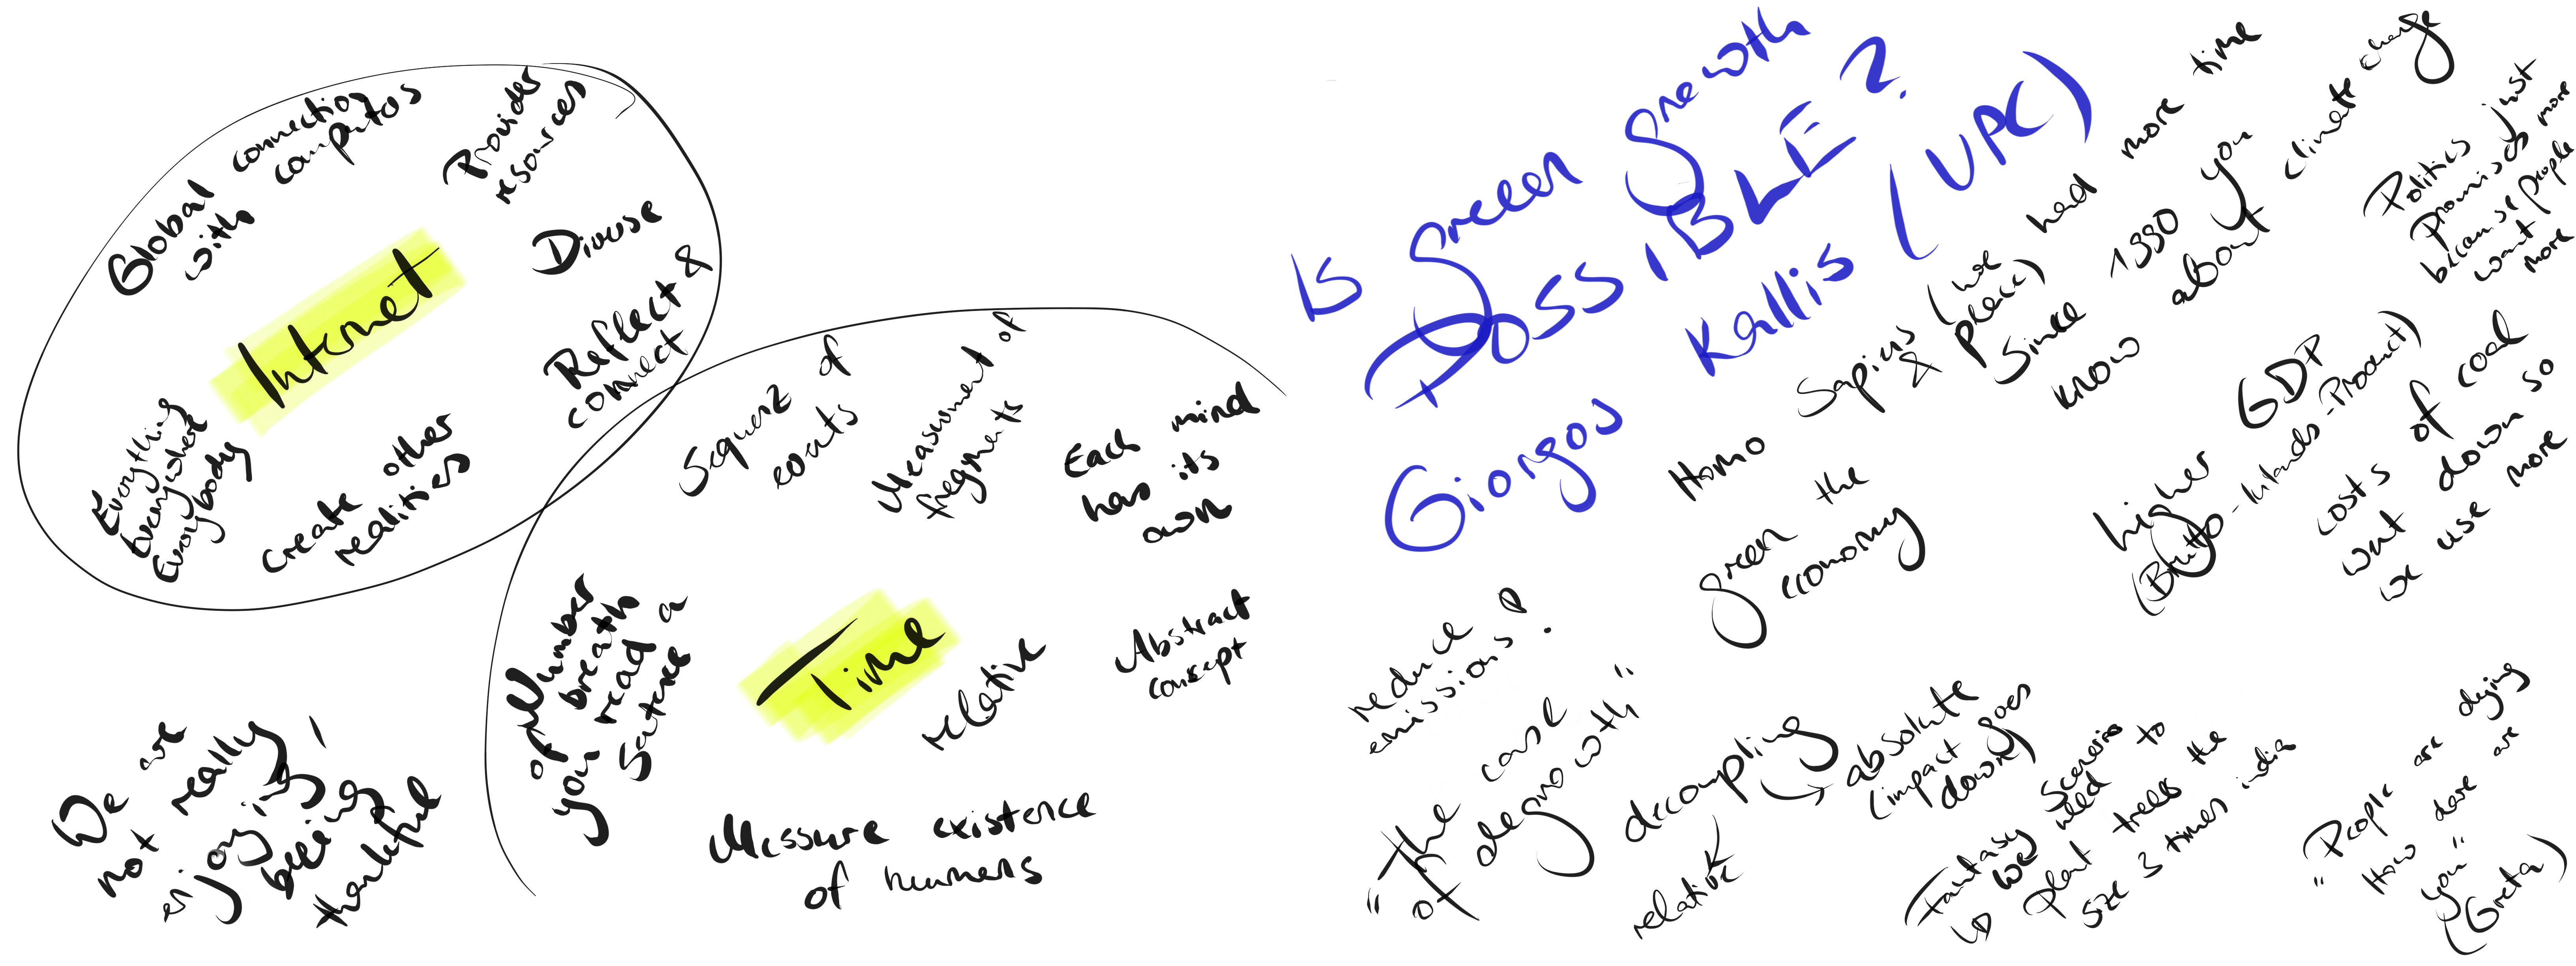 Global connection
with computos
Provider
resources
Diverse
Internet
Reflect &
connect
Everything
Everywhere
Everybody
create other
realities
Sequenz of
events
Measurment of
fregments
Each mind
has its
own
Number
of breath
you read a
Sentence
Time
relative
Abstract
concept
Messure existence
of humens
We are
not really
enjoying,
being
thankful
Is green growth
POSSIBLE?
Giorgos Kallis (UPC)
Homo Sapiens (we had more time
& place)
Since 1990 you
know about climate change
Politics just
promises more
because people
want
more
green the
economy
higher GDP
(Brutto-Inlands-Product)
costs of coal
went down so
we use more
reduce
emissions!
"The case
of degrowth"
decoupling
absolute
(impact goes
down)
relative
Fantasy Scenerios
we need to
plant trees the
size 3 times india
"People are dying
How dare are
you"
(Greta)